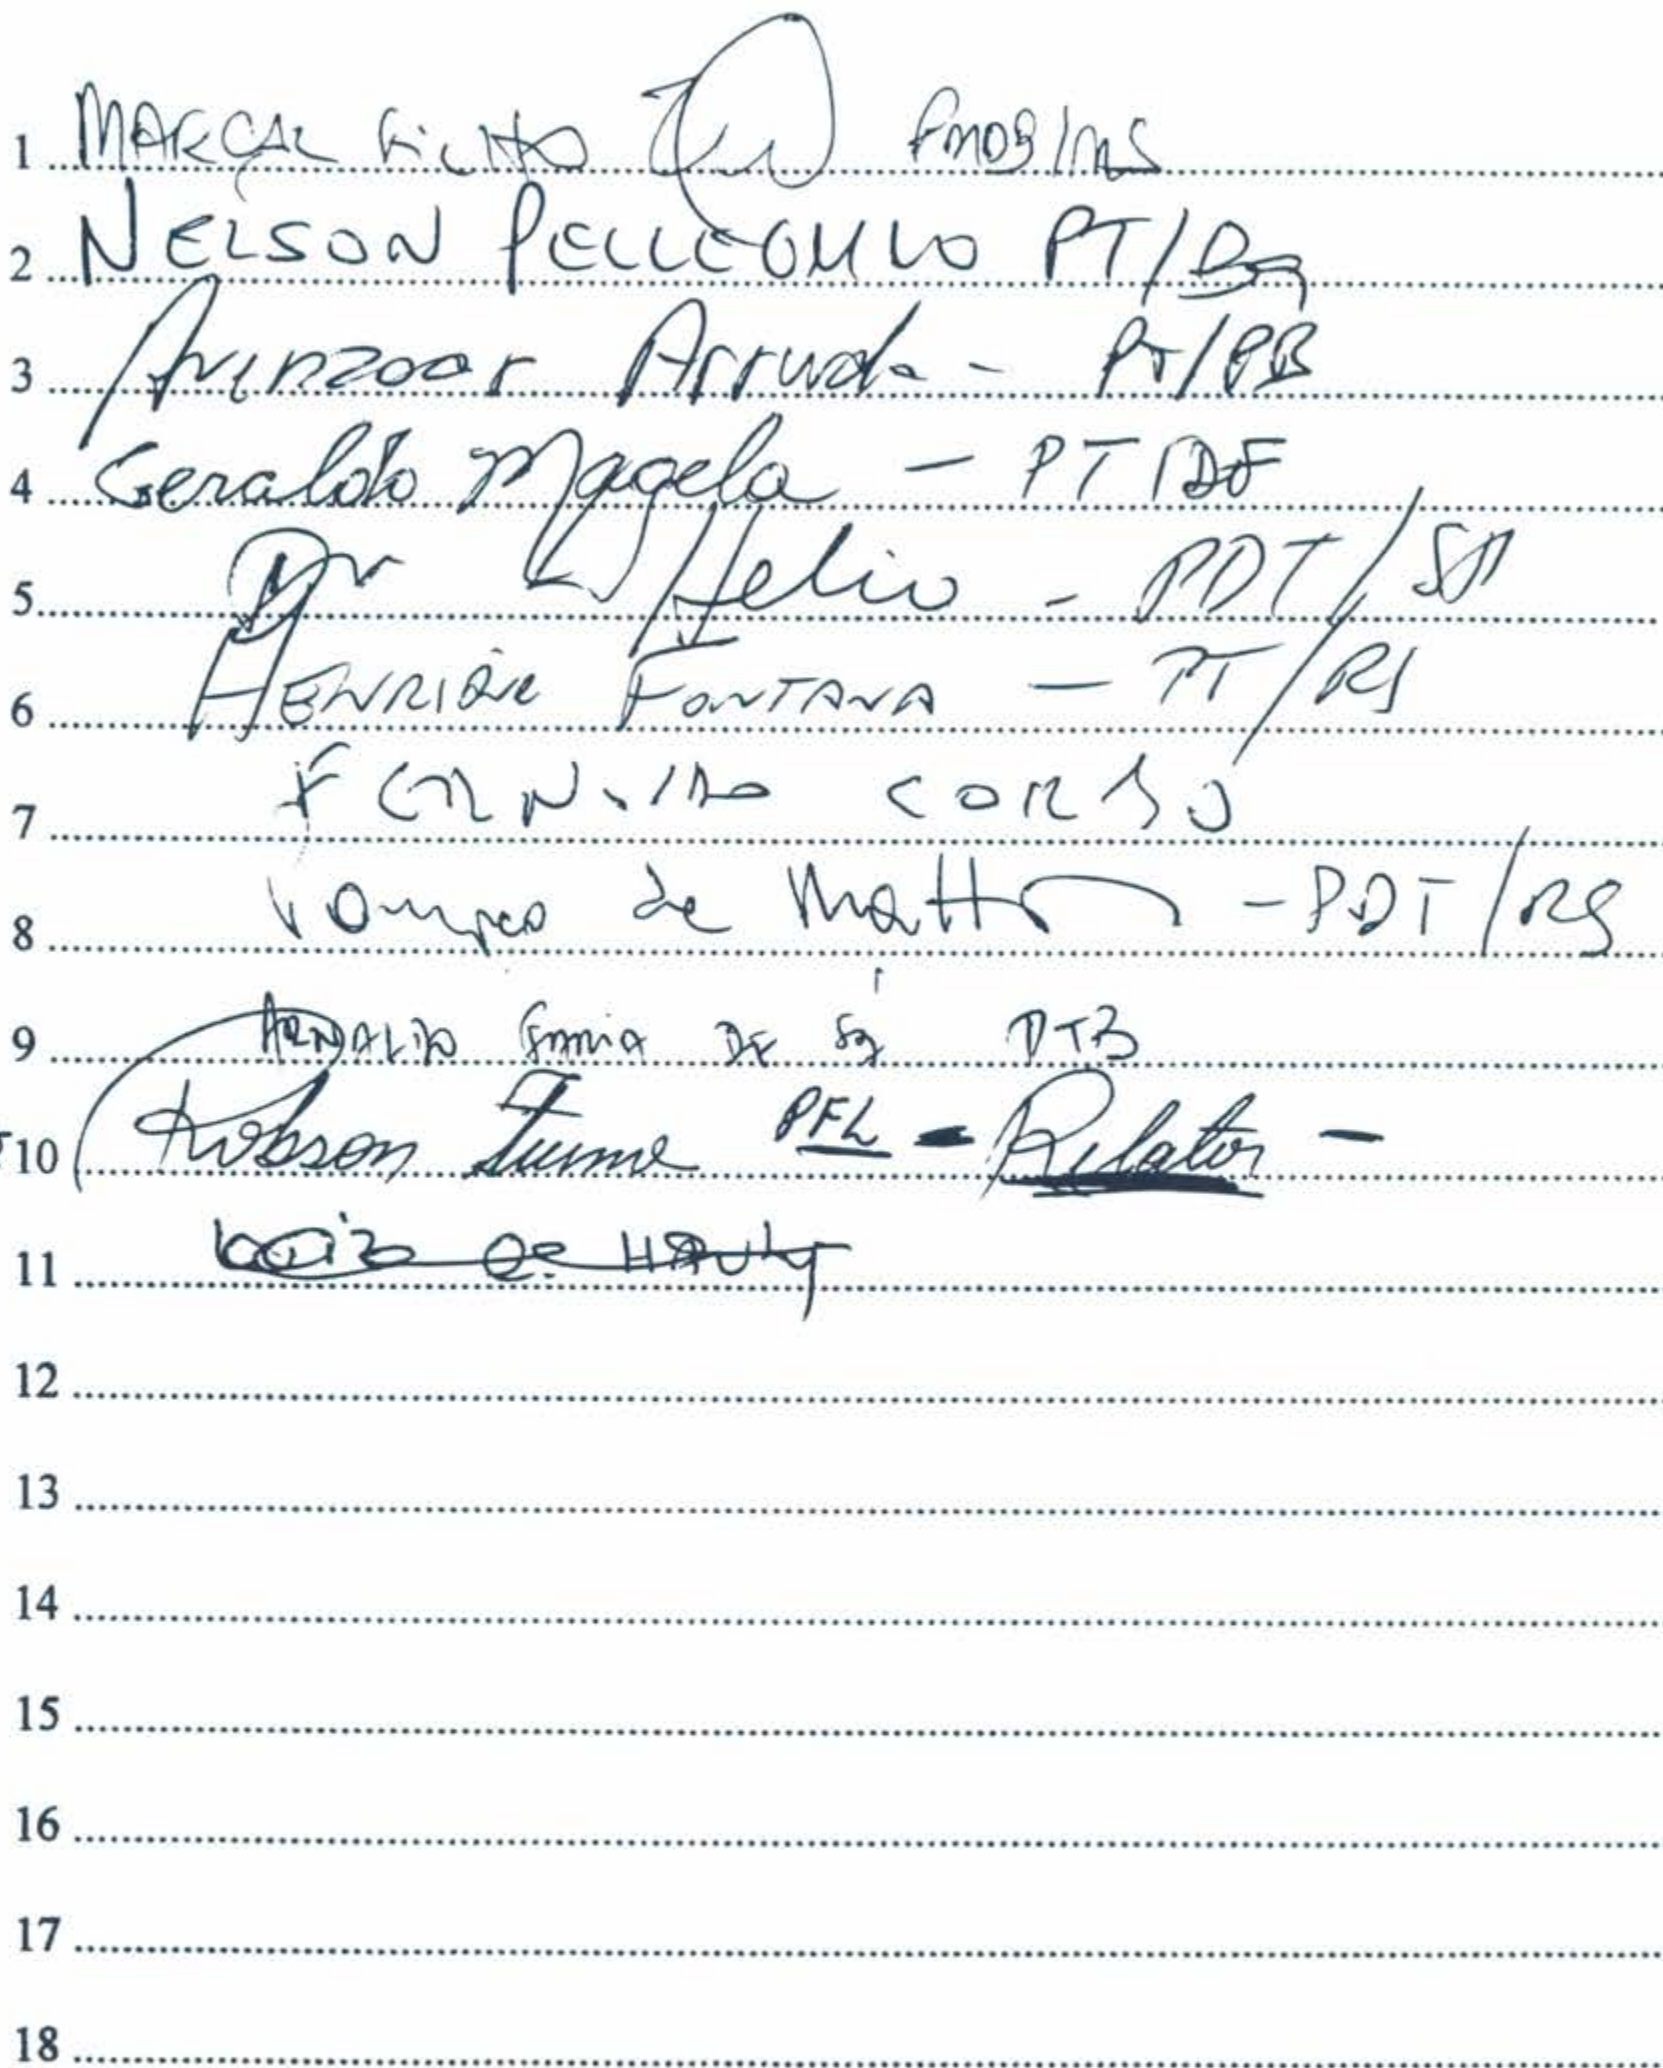 1 MARÇAL FILHO PMDB/MS
2 NELSON PELLEGRINO PT/BA
3 Avenzoar Arruda - PT/PB
4 Geraldo Magela - PT/DF
5 Dr Helio - PDT/SP
6 HENRIQUE FONTANA - PT/RS
7 CORAJ
8 Pompeo de Mattos - PDT/RS
9 ARNALDO FARIA DE SÁ PTB
10 Robson Tuma PFL - Relator -
11 LUIZ C. HAULY
12
13
14
15
16
17
18